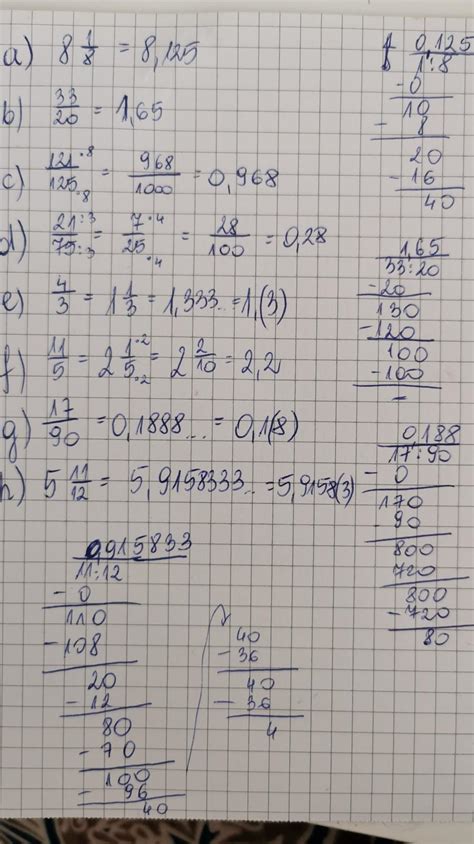 a) 8 1/8 = 8,125
b) 33/20 = 1,65
c) 121·8/125·8 = 968/1000 = 0,968
d) 21:3/75:3 = 7·4/25·4 = 28/100 = 0,28
e) 4/3 = 1 1/3 = 1,333... = 1,(3)
f) 11/5 = 2 1·2/5·2 = 2 2/10 = 2,2
g) 17/90 = 0,1888... = 0,1(8)
h) 5 11/12 = 5,9158333... = 5,9158(3)
0,125
1:8
-0
10
- 8
20
-16
40
1,65
33:20
-20
130
-120
100
-100
-
0,188
17:90
- 0
170
- 90
800
720
800
-720
80
0,915833
11:12
- 0
110
-108
20
-12
80
-70
100
- 96
40
40
-36
40
-36
4